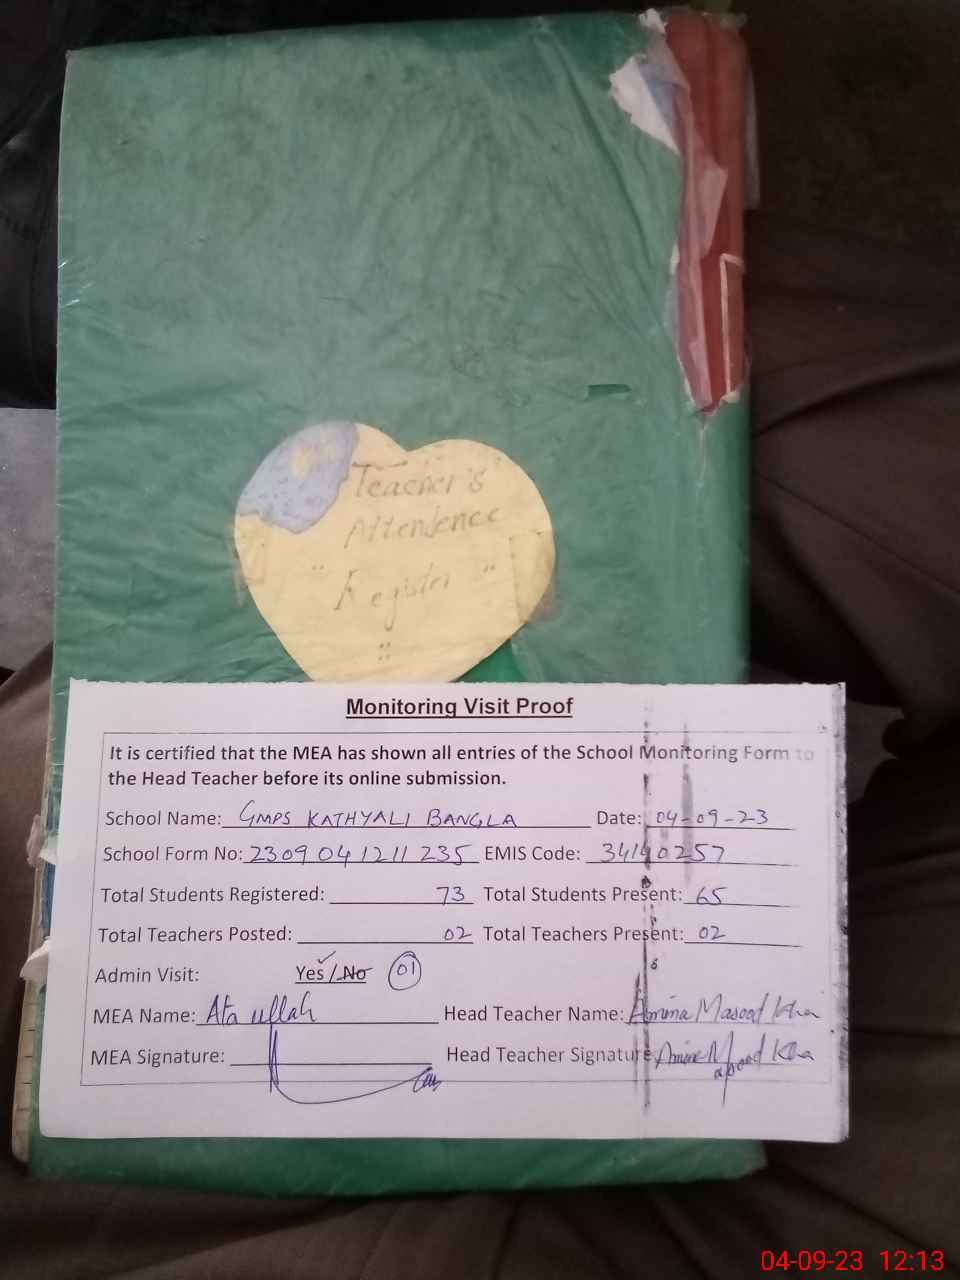 Teacher's
Attendence
" Register "
::
Monitoring Visit Proof
It is certified that the MEA has shown all entries of the School Monitoring Form to
the Head Teacher before its online submission.
School Name: GMPS KATHYALI BANGLA Date: 04-09-23
School Form No: 2309041211235 EMIS Code: 34140257
Total Students Registered: 73 Total Students Present: 65
Total Teachers Posted: 02 Total Teachers Present: 02
Admin Visit: Yes / No 01
MEA Name: Ata ullah Head Teacher Name: Amina Masood Kha
MEA Signature: Head Teacher Signature: Amina Masood Kha
04-09-23 12:13